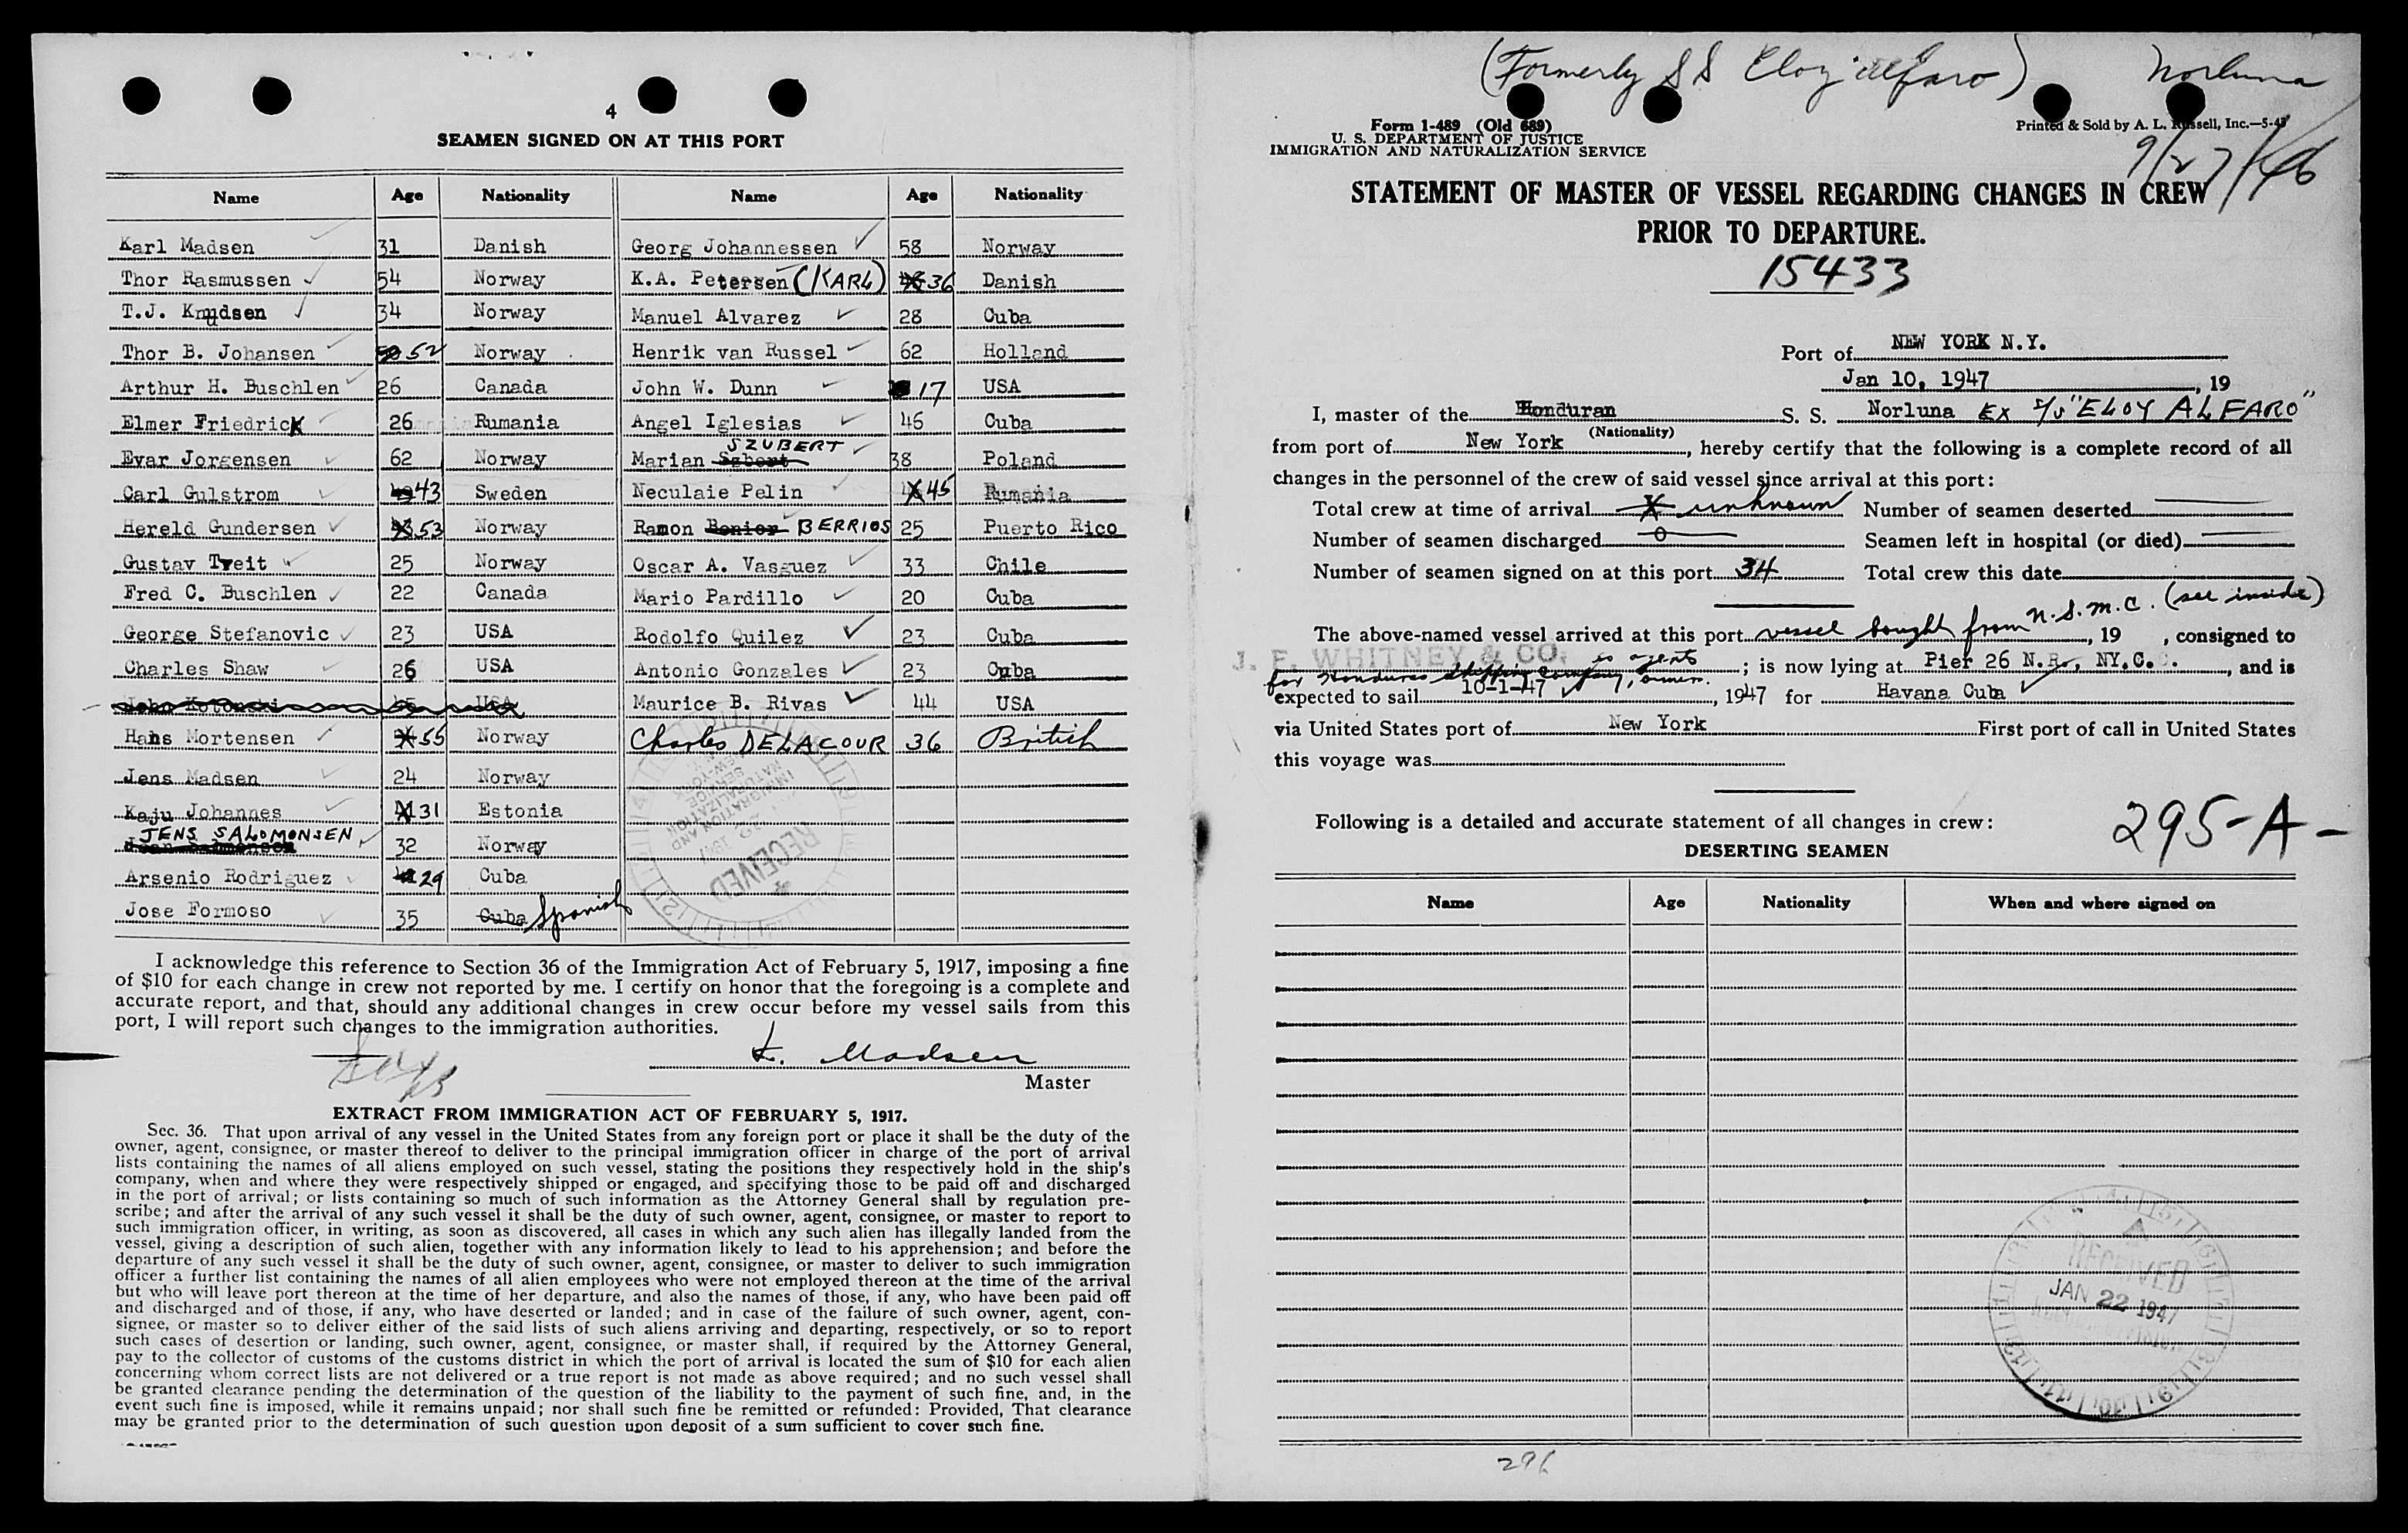 4
SEAMEN SIGNED ON AT THIS PORT
Name Age Nationality Name Age Nationality
Karl Madsen 31 Danish Georg Johannessen ✓ 58 Norway
Thor Rasmussen ✓ 54 Norway K.A. Petersen (KARL) 36 Danish
T.J. Knudsen ✓ 34 Norway Manuel Alvarez ✓ 28 Cuba
Thor B. Johansen ✓ 52 Norway Henrik van Russel ✓ 62 Holland
Arthur H. Buschlen ✓ 26 Canada John W. Dunn ✓ 17 USA
Elmer Friedrick ✓ 26 Rumania Angel Iglesias ✓ 46 Cuba
Evar Jorgensen ✓ 62 Norway Marian Szbert SZUBERT ✓ 38 Poland
Carl Gulstrom ✓ 43 Sweden Neculaie Pelin ✓ 45 Rumania
Hereld Gundersen ✓ 53 Norway Ramon Benior BERRIOS 25 Puerto Rico
Gustav Tveit ✓ 25 Norway Oscar A. Vasguez ✓ 33 Chile
Fred C. Buschlen ✓ 22 Canada Mario Pardillo ✓ 20 Cuba
George Stefanovic ✓ 23 USA Rodolfo Quilez ✓ 23 Cuba
Charles Shaw ✓ 26 USA Antonio Gonzales ✓ 23 Cuba
USA Maurice B. Rivas ✓ 44 USA
Hans Mortensen ✓ 55 Norway Charles DELACOUR 36 British
Jens Madsen ✓ 24 Norway
Kaju Johannes ✓ 31 Estonia
JENS SALOMONSEN ✓ 32 Norway
Arsenio Rodriguez ✓ 29 Cuba
Jose Formoso ✓ 35 Cuba Spanish
IMMIGRATION AND NATURALIZATION SERVICE NEW-YORK
RECEIVED
I acknowledge this reference to Section 36 of the Immigration Act of February 5, 1917, imposing a fine
of $10 for each change in crew not reported by me. I certify on honor that the foregoing is a complete and
accurate report, and that, should any additional changes in crew occur before my vessel sails from this
port, I will report such changes to the immigration authorities.
K. Madsen
Master
EXTRACT FROM IMMIGRATION ACT OF FEBRUARY 5, 1917.
Sec. 36. That upon arrival of any vessel in the United States from any foreign port or place it shall be the duty of the
owner, agent, consignee, or master thereof to deliver to the principal immigration officer in charge of the port of arrival
lists containing the names of all aliens employed on such vessel, stating the positions they respectively hold in the ship's
company, when and where they were respectively shipped or engaged, and specifying those to be paid off and discharged
in the port of arrival; or lists containing so much of such information as the Attorney General shall by regulation pre-
scribe; and after the arrival of any such vessel it shall be the duty of such owner, agent, consignee, or master to report to
such immigration officer, in writing, as soon as discovered, all cases in which any such alien has illegally landed from the
vessel, giving a description of such alien, together with any information likely to lead to his apprehension; and before the
departure of any such vessel it shall be the duty of such owner, agent, consignee, or master to deliver to such immigration
officer a further list containing the names of all alien employees who were not employed thereon at the time of the arrival
but who will leave port thereon at the time of her departure, and also the names of those, if any, who have been paid off
and discharged and of those, if any, who have deserted or landed; and in case of the failure of such owner, agent, con-
signee, or master so to deliver either of the said lists of such aliens arriving and departing, respectively, or so to report
such cases of desertion or landing, such owner, agent, consignee, or master shall, if required by the Attorney General,
pay to the collector of customs of the customs district in which the port of arrival is located the sum of $10 for each alien
concerning whom correct lists are not delivered or a true report is not made as above required; and no such vessel shall
be granted clearance pending the determination of the question of the liability to the payment of such fine, and, in the
event such fine is imposed, while it remains unpaid; nor shall such fine be remitted or refunded: Provided, That clearance
may be granted prior to the determination of such question upon deposit of a sum sufficient to cover such fine.
(Formerly SS Eloy Alfaro) Norluna
Form 1-489 (Old 689)
U. S. DEPARTMENT OF JUSTICE
IMMIGRATION AND NATURALIZATION SERVICE
Printed & Sold by A. L. Russell, Inc.—5-45
9/27/46
STATEMENT OF MASTER OF VESSEL REGARDING CHANGES IN CREW
PRIOR TO DEPARTURE.
15433
Port of NEW YORK N.Y.
Jan 10, 1947, 19
I, master of the Honduran S. S. Norluna Ex S/S "ELOY ALFARO"
(Nationality)
from port of New York, hereby certify that the following is a complete record of all
changes in the personnel of the crew of said vessel since arrival at this port:
Total crew at time of arrival X unknown Number of seamen deserted
Number of seamen discharged 0 Seamen left in hospital (or died)
Number of seamen signed on at this port 34 Total crew this date
The above-named vessel arrived at this port vessel bought from N.S.M.C. (see inside), 19 , consigned to
J. F. WHITNEY & CO. as agents; is now lying at Pier 26 N.R., NY.C., and is
for Honduras Shipping Company, owners.
expected to sail 10-1-47 ✓, 1947 for Havana Cuba ✓
via United States port of New York First port of call in United States
this voyage was
Following is a detailed and accurate statement of all changes in crew:
295-A-
DESERTING SEAMEN
Name Age Nationality When and where signed on
RECEIVED
JAN 22 1947
296